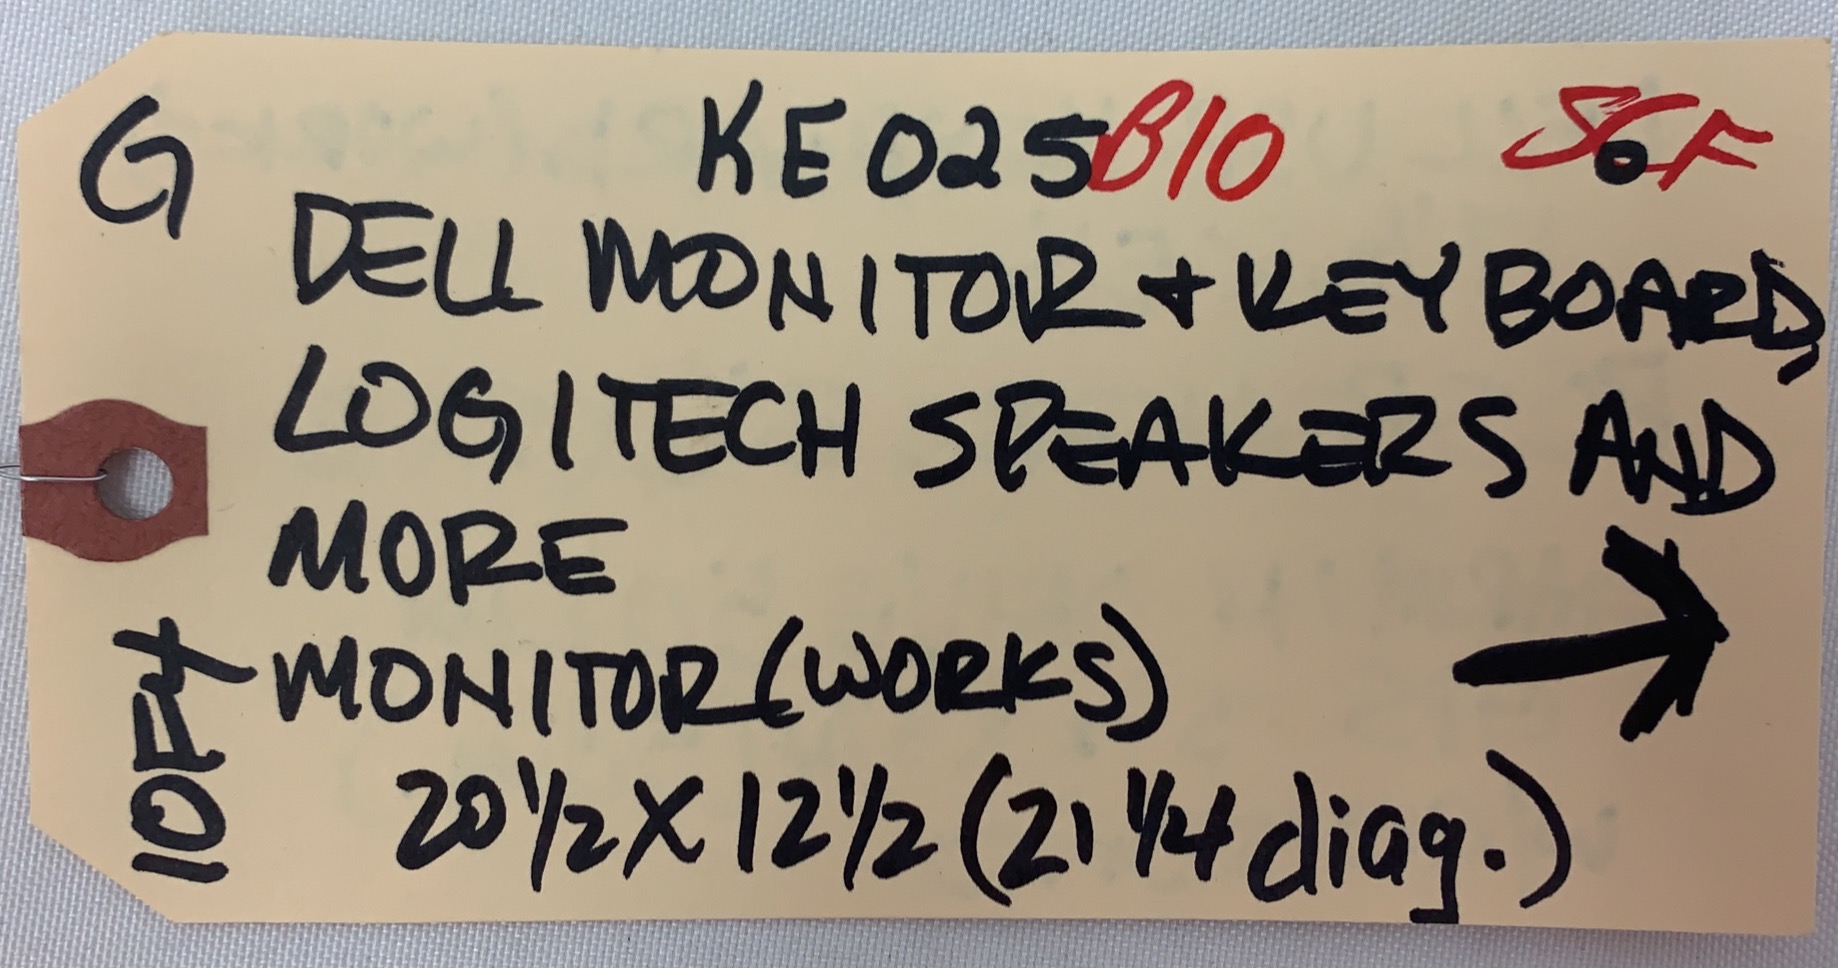 G KE025B10 SGF
DELL MONITOR + KEYBOARD,
LOGITECH SPEAKERS AND
MORE
MONITOR (WORKS)
20 1/2 X 12 1/2 (21 1/4 diag.)
1OF4